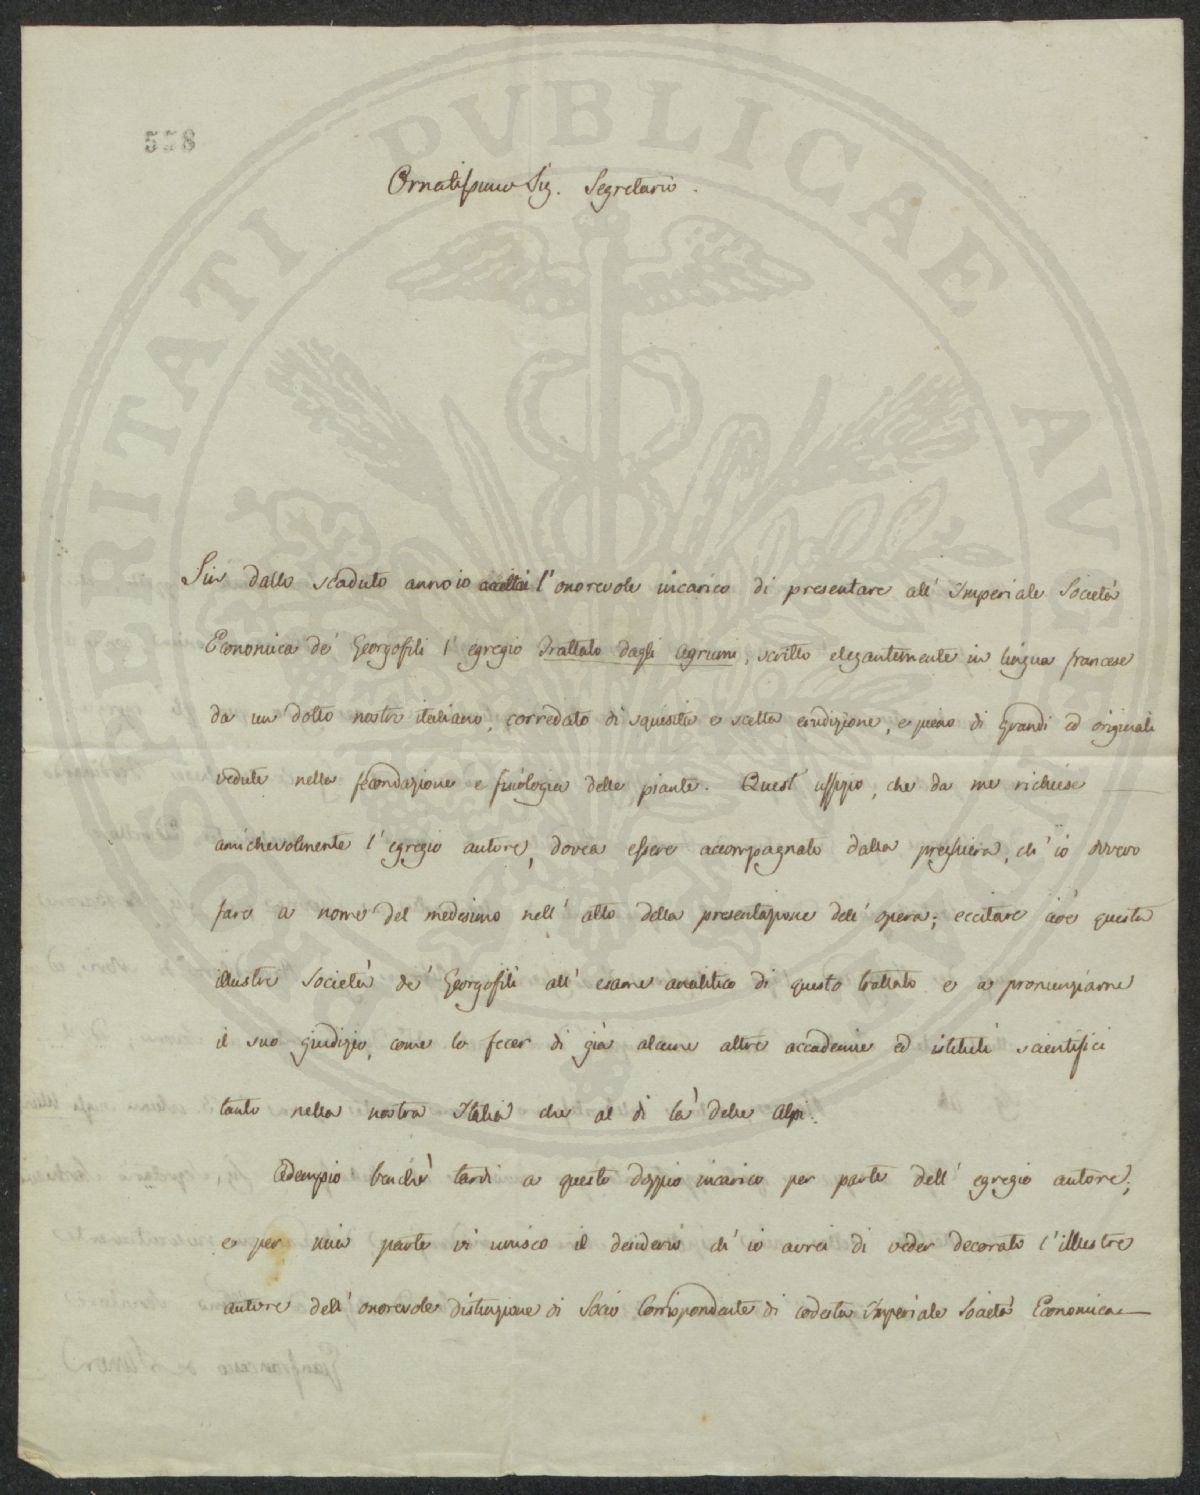 558
Ornatissimo Sig. Segretario.
Sin dallo scaduto anno io accettai l'onorevole incarico di presentare all' Imperiale Società
Economica de' Georgofili l'egregio Trattato dagli Agrumi, scritto elegantemente in lingua francese
da un dotto nostro italiano, corredato di squisita e scelta erudizione, e pieno di grandi ed originali
vedute nella fecondazione e fisiologia delle piante. Quest' uffizio, che da me richiese
amichevolmente l'egregio autore, dovea essere accompagnato dalla preghiera, ch' io dovevo
fare a nome del medesimo nell' atto della presentazione dell' opera; eccitare cioè questa
illustre Società de' Georgofili all' esame analitico di questo trattato e a pronunziarne
il suo giudizio, come lo fecer di già alcune altre accademie ed istituti scientifici
tanto nella nostra Italia che al di là delle Alpi.
Adempio benchè tardi a questo doppio incarico per parte dell' egregio autore;
e per mia parte vi unisco il desiderio ch' io avrei di veder decorato l'illustre
autore dell' onorevole distinzione di Socio Corrispondente di codesta Imperiale Società Economica
PVBLICAE